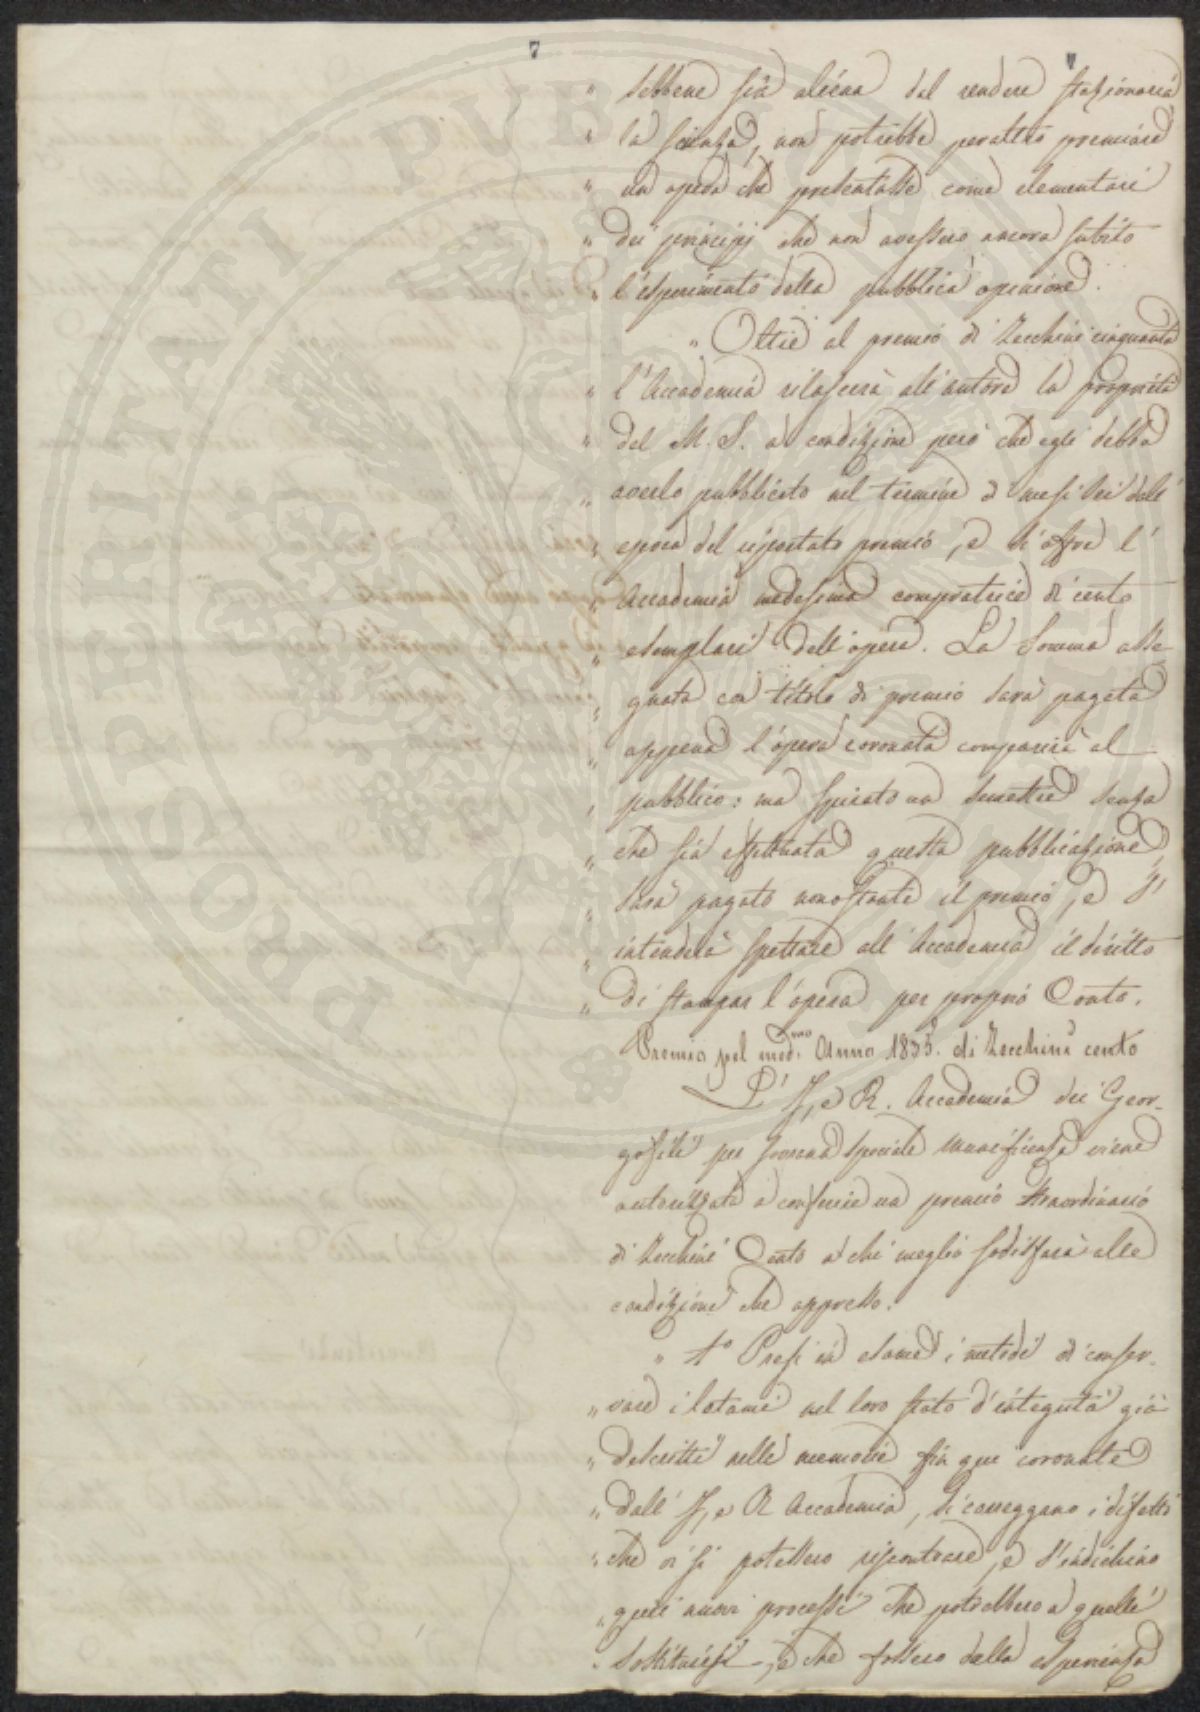 7
„ sebbene sia aliena dal rendere stazionaria
„ la scienza, non potrebbe peraltro premiare
„ un opera che presentasse come elementari
„ dei principj che non avessero ancora subito
„ l'esperimento della pubblica opinione.
„ Oltre al premio di Zecchini cinquanta
„ l'Accademia rilascerà all'autore la proprietà
„ del M. S. a condizione però che egli debba
„ averlo pubblicato nel termine di mesi sei dall'
„ epoca del riportato premio, e si offre l'
„ Accademia medesima compratrice di cento
„ esemplari dell'opera. La Somma asse-
„ gnata con titolo di premio sarà pagata
„ appena l'opera coronata comparirà al
„ pubblico: ma spirato un semestre senza
„ che sia effettuata questa pubblicazione,
„ sarà pagato nonostante il premio, e s'
„ intenderà spettare all'Accademia il diritto
„ di stampar l'opera per proprio Conto.
Premio pel med.mo Anno 1835. di Zecchini cento
L' I, e R. Accademia dei Geor-
gofili per Sovrana speciale munificenza viene
autorizzata a conferire un premio straordinario
di Zecchini Cento a chi meglio sodisfarà alle
condizioni che appresso.
„ 1.° Presi in esame i metodi di conser-
„ vare i letami nel loro stato d'integrità già
„ descritti nelle memorie fin qui coronate
„ dall' I, e R Accademia, si correggano i difetti
„ che vi si potessero riscontrare, e s'indichino
„ quei nuovi processi che potrebbero a quelli
„ sostituirsi, e che fossero dalla esperienza
PROSPERITATI PUBLICAE AUGENDAE